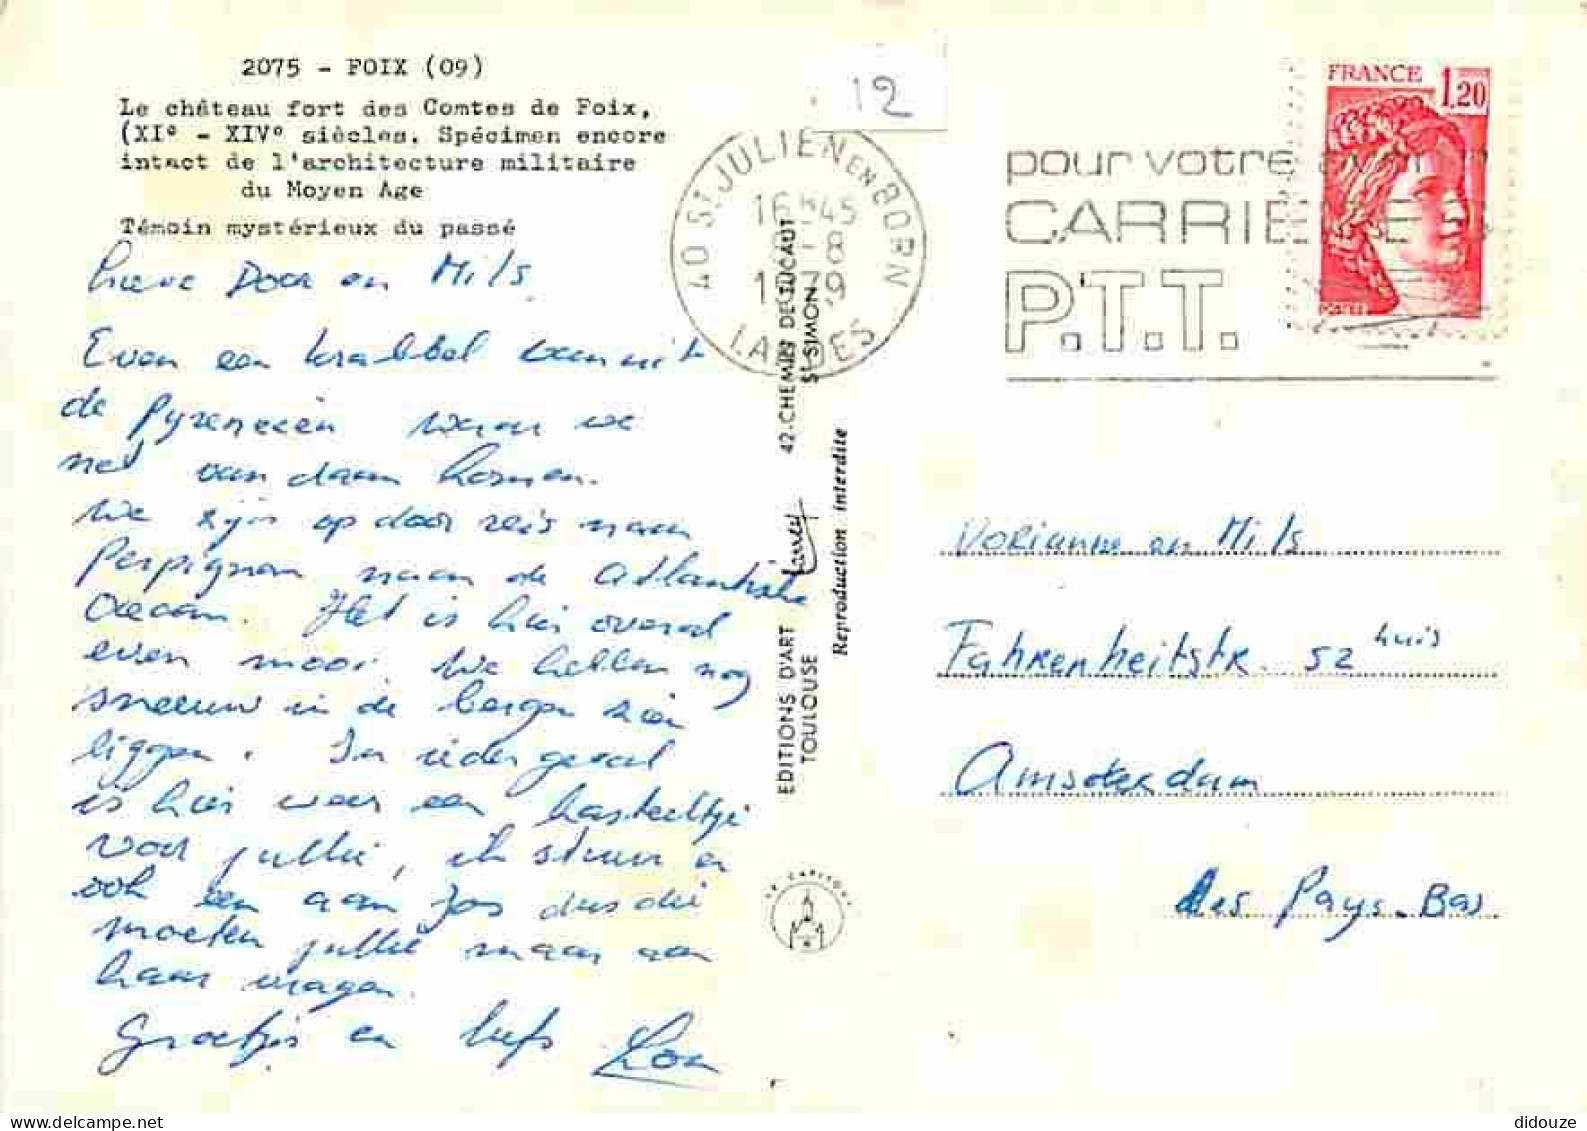 2075 - FOIX (09)
Le château fort des Comtes de Foix,
(XIe - XIVe siècles. Spécimen encore
intact de l'architecture militaire
du Moyen Age
Témoin mystérieux du passé
Lieve Door en Mils
Even een krabbel vanuit
de Pyreneeën waar we
net vandaan komen.
We zijn op door reis naar
Perpignan naar de Atlantische
Oceaan. Het is hier overal
even mooi. We hebben nog
sneeuw in de bergen zien
liggen. In ieder geval
is hier weer een kasteeltje
voor jullie, ik stuur er
ook een aan Jos dus die
moeten jullie maar aan
haar vragen.
Groetjes en liefs
12
40 ST JULIEN EN BORN
16H45
8-8
1979
LANDES
pour votre
CARRIE
P.T.T.
FRANCE 1,20
POSTES
EDITIONS D'ART Larrey 42. CHEMIN DE TUCAUT
TOULOUSE ST-SIMON
Reproduction interdite
LE CAPITOUL
Dorianne en Mils
Fahrenheitstr. 52 huis
Amsterdam
Les Pays-Bas
didouze